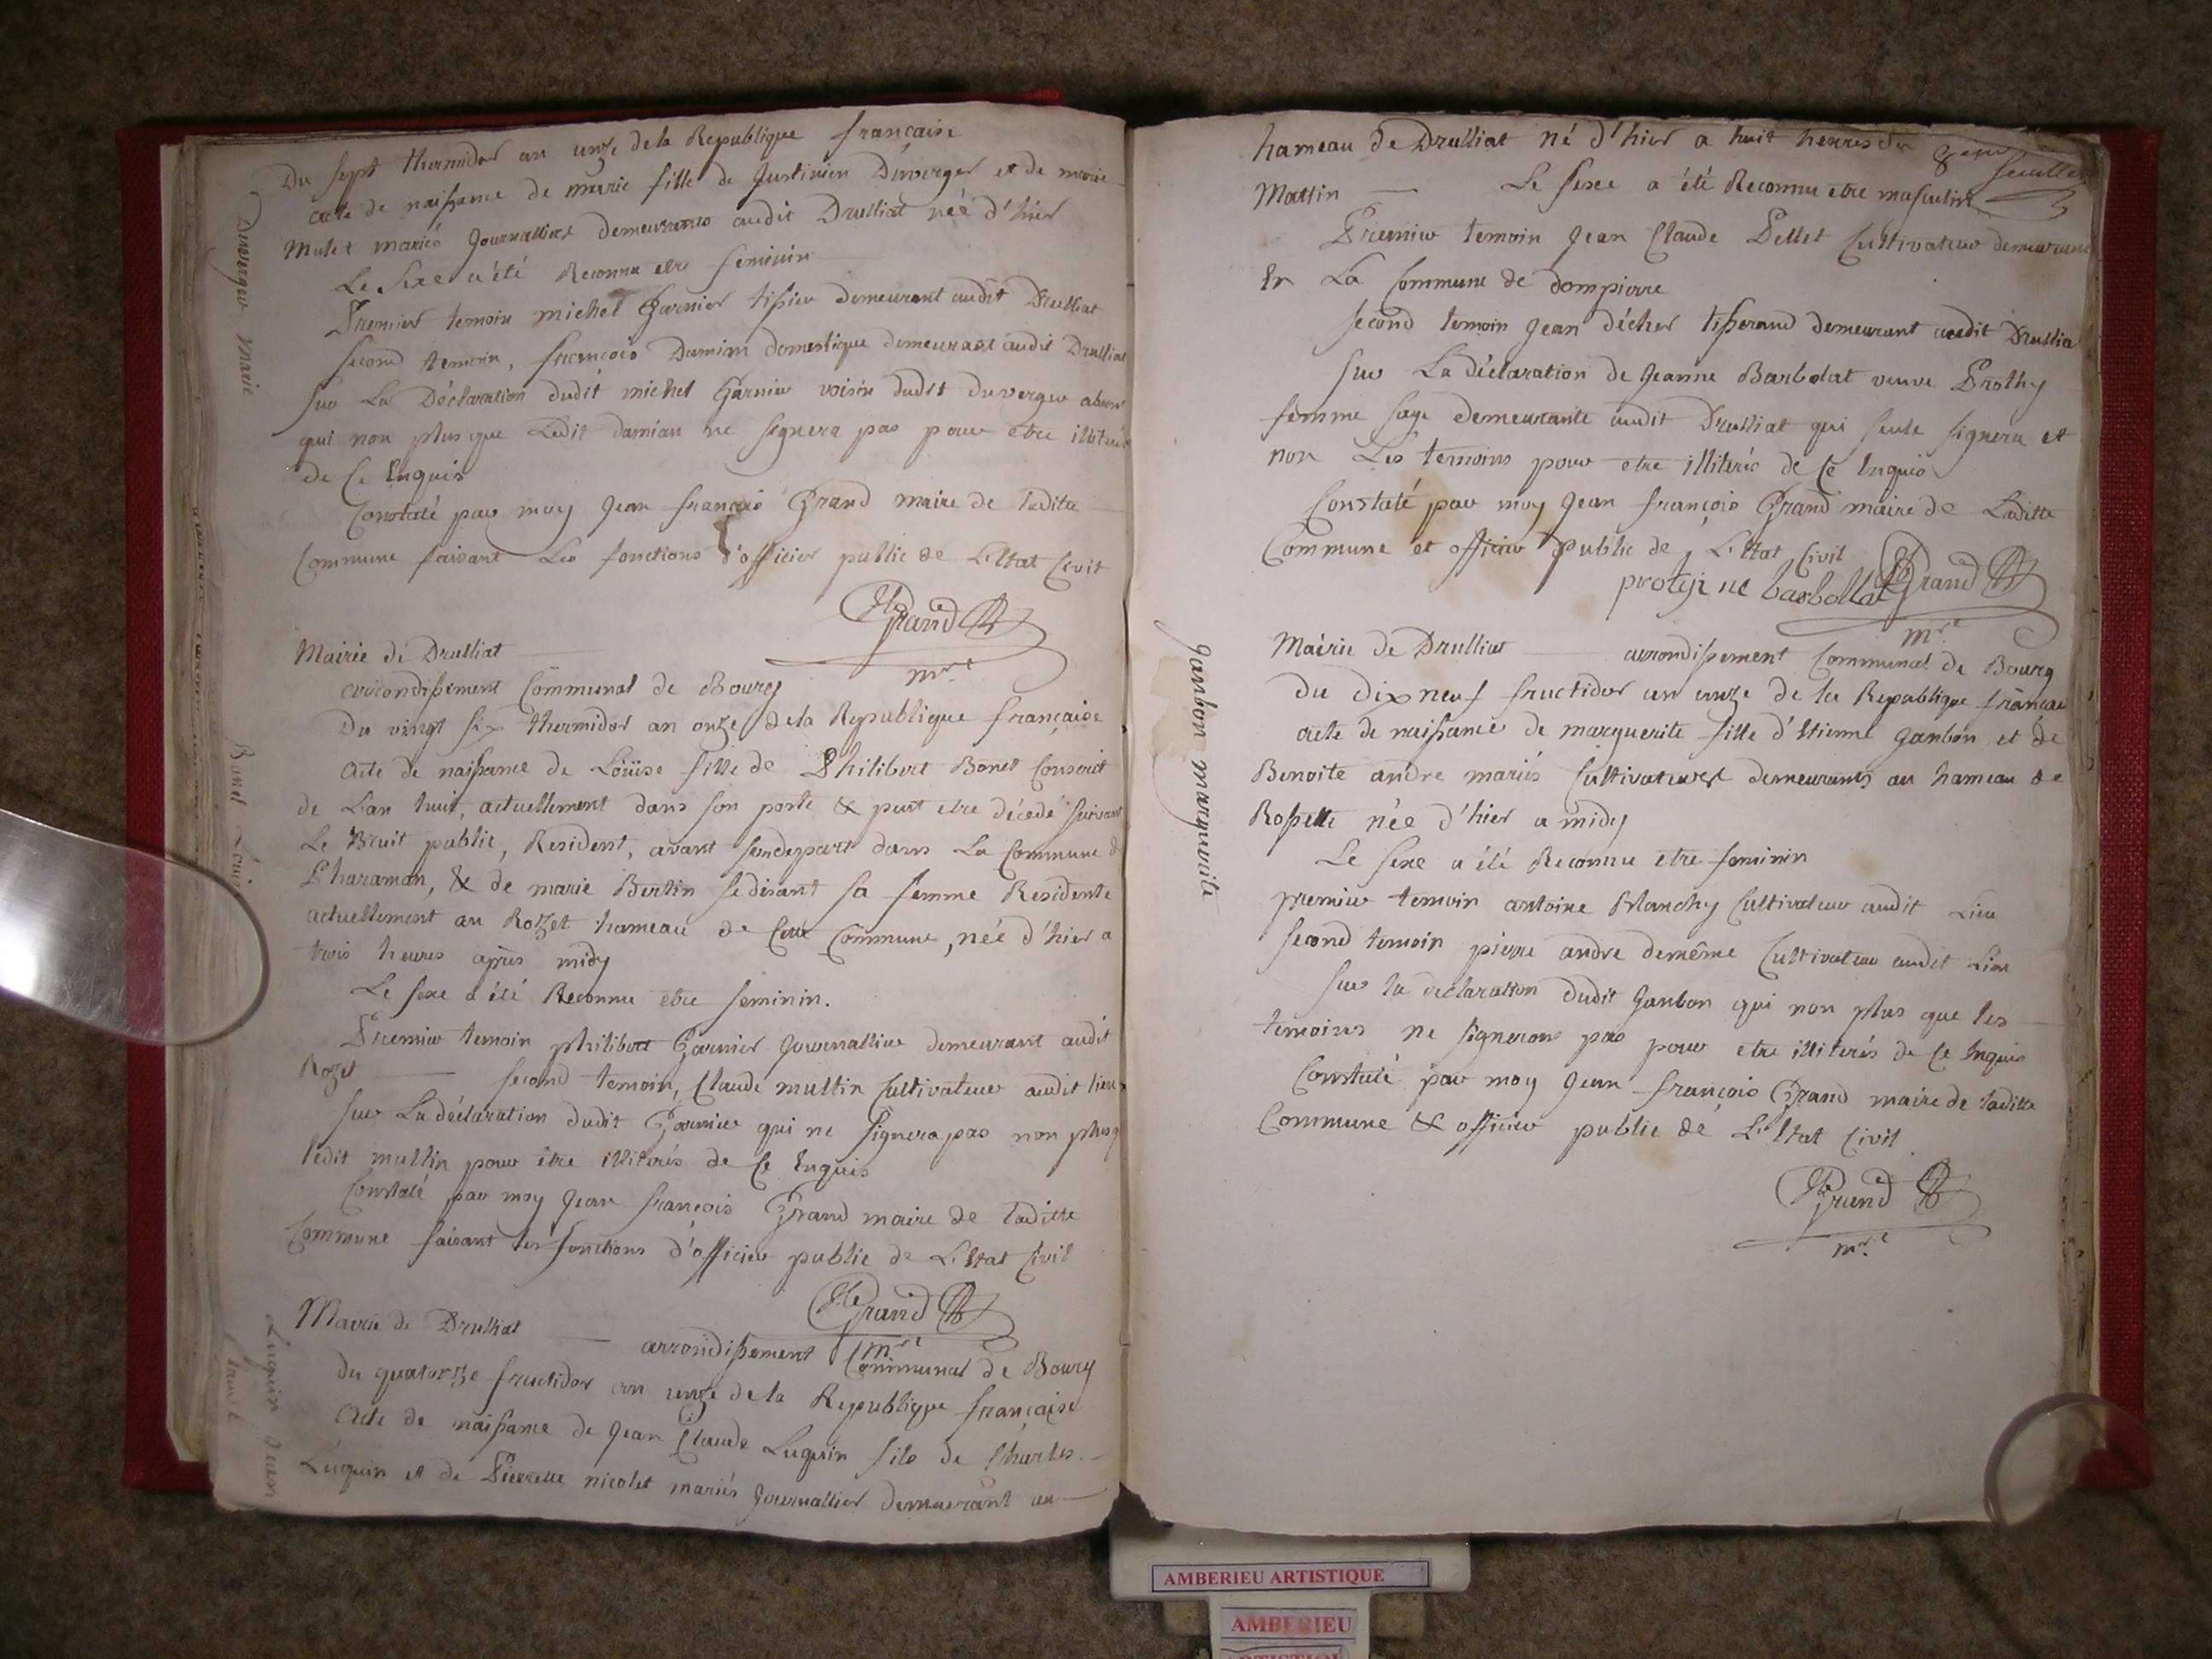 Du sept thermidor an unze de la Republique française
acte de naissance de marie fille de Justinien Duverger et de marie
Mulet mariés Journallier demeurants audit Drulliat née d'hier
Le Sexe a été Reconnu etre feminin
Premier temoin michel Garnier tissier demeurant audit Drulliat
second temoin, françois Damian domestique demeurant audit Drulliat
sur La Déclaration dudit michel Garnier voisin dudit duverger absent
qui non plus que Ledit damian ne signera pas pour etre illiterés
de Ce Enquis
Constaté par moy Jean françois Grand maire de laditte
Commune faisant Les fonctions d'officier public de L'Etat Civil
Grand
mre
Duverger Marie
Mairie de Drulliat
arrondissement Communal de Bourg
Du vingt six thermidor an onze de la Republique française
Acte de naissance de Loüise fille de Philibert Bonet Conscrit
de L'an huit, actuellement dans son poste & peut etre décedé suivant
Le Bruit public, Resident, avant son depart dans La Commune de
Pharaman, & de marie Bertin se disant sa femme Residente
actuellement au Rozet hameau de Cette Commune, née d'hier a
trois heures après midy
Le sexe a été Reconnu etre feminin.
Premier temoin philibert Garnier Journallier demeurant audit
Rozet second temoin, Claude multin Cultivateur audit lieu
sur La déclaration dudit Garnier qui ne signera pas non plus q
ledit multin pour être illiterés de Ce Enquis
Constaté par moy Jean françois Grand maire de laditte
Commune faisant les fonctions d'officier public de L'Etat Civil
Grand
mre
Bonet Louise
Mairie de Drulliat arrondissement Communal de Bourg
du quatorze fructidor an unze de la Republique française
Acte de naissance de Jean Claude Luquin fils de Charles
Luquin et de Pierrette nicolet mariés Journallier demeurant au
Luquin Jean
Claude
hameau de Drulliat né d'hier a huit heures du
feuillet
Mattin Le sexe a été Reconnu etre masculin
Premier temoin Jean Claude Pellet Cultivateur demeurant
En La Commune de dompierre
second temoin Jean décher tisserand demeurant audit Drullia
sur La déclaration de Jeanne Barbolat veuve Prothy
femme sage demeurante audit Drulliat qui seule signera et
non Les temoins pour etre illiterés de Ce Enquis
Constaté par moy Jean françois Grand maire de Laditte
Commune et officier public de L'Etat Civil
barbollat Grand
mre
Mairie de Drulliat arrondissement Communal de Bourg
du dix neuf fructidor an unze de la Republique francai
acte de naissance de marguerite fille d'Etienne ganbon et de
Benoite andre mariés Cultivateurs demeurants au hameau de
Rossette née d'hier a midy
Le sexe a été Reconnu etre feminin
premier temoin antoine Blanchy Cultivateur audit Lieu
second temoin pierre andre demême Cultivateur audit Lieu
sur la declaration dudit Ganbon qui non plus que les
temoins ne signerons pas pour etre illiterés de Ce Enquis
Constaté par moy Jean françois Grand maire de laditte
Commune & officier public de L'Etat Civil
Grand
mre
ganbon marguerite
AMBERIEU ARTISTIQUE
AMBERIEU
ARTISTIQUE